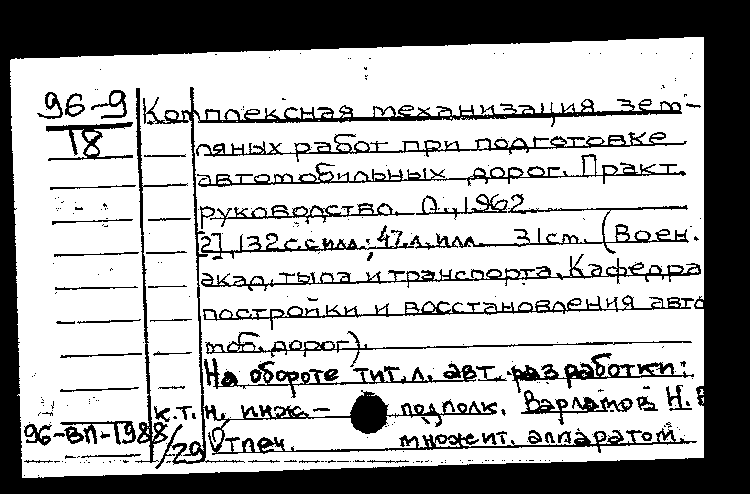 96-9 Комплексная механизация зем-
18 ляных работ при подготовке
автомобильных дорог. Практ.
руководство. Л., 1962
[2], 132 с. с илл.; 47 л. илл. 31 см. (Воен.
акад. тыла и транспорта. Кафедра
постройки и восстановления авто
моб. дорог).
На обороте тит. л. авт. разработки:
к.т.н. инж- подполк. Варламов Н.
96-ВП-1988/29 Отпеч. множит. аппаратом.